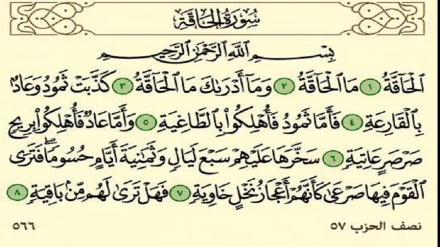 سُورَةُ الْحَاقَّةِ
بِسْمِ اللَّهِ الرَّحْمَٰنِ الرَّحِيمِ
الْحَاقَّةُ ١ مَا الْحَاقَّةُ ٢ وَمَا أَدْرَىٰكَ مَا الْحَاقَّةُ ٣ كَذَّبَتْ ثَمُودُ وَعَادٌ
بِالْقَارِعَةِ ٤ فَأَمَّا ثَمُودُ فَأُهْلِكُوا بِالطَّاغِيَةِ ٥ وَأَمَّا عَادٌ فَأُهْلِكُوا بِرِيحٍ
صَرْصَرٍ عَاتِيَةٍ ٦ سَخَّرَهَا عَلَيْهِمْ سَبْعَ لَيَالٍ وَثَمَٰنِيَةَ أَيَّامٍ حُسُومًا فَتَرَى
الْقَوْمَ فِيهَا صَرْعَىٰ كَأَنَّهُمْ أَعْجَازُ نَخْلٍ خَاوِيَةٍ ٧ فَهَلْ تَرَىٰ لَهُم مِّنۢ بَاقِيَةٍ ٨
نصف الحزب ٥٧ ٥٦٦